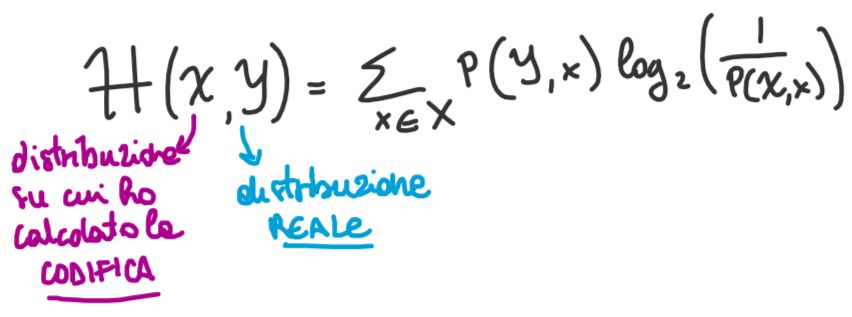 H(X,Y) = ∑ P(Y,x) log₂(1/P(X,x))
x∈X
distribuzione
su cui ho
calcolato la
CODIFICA
distribuzione
REALE